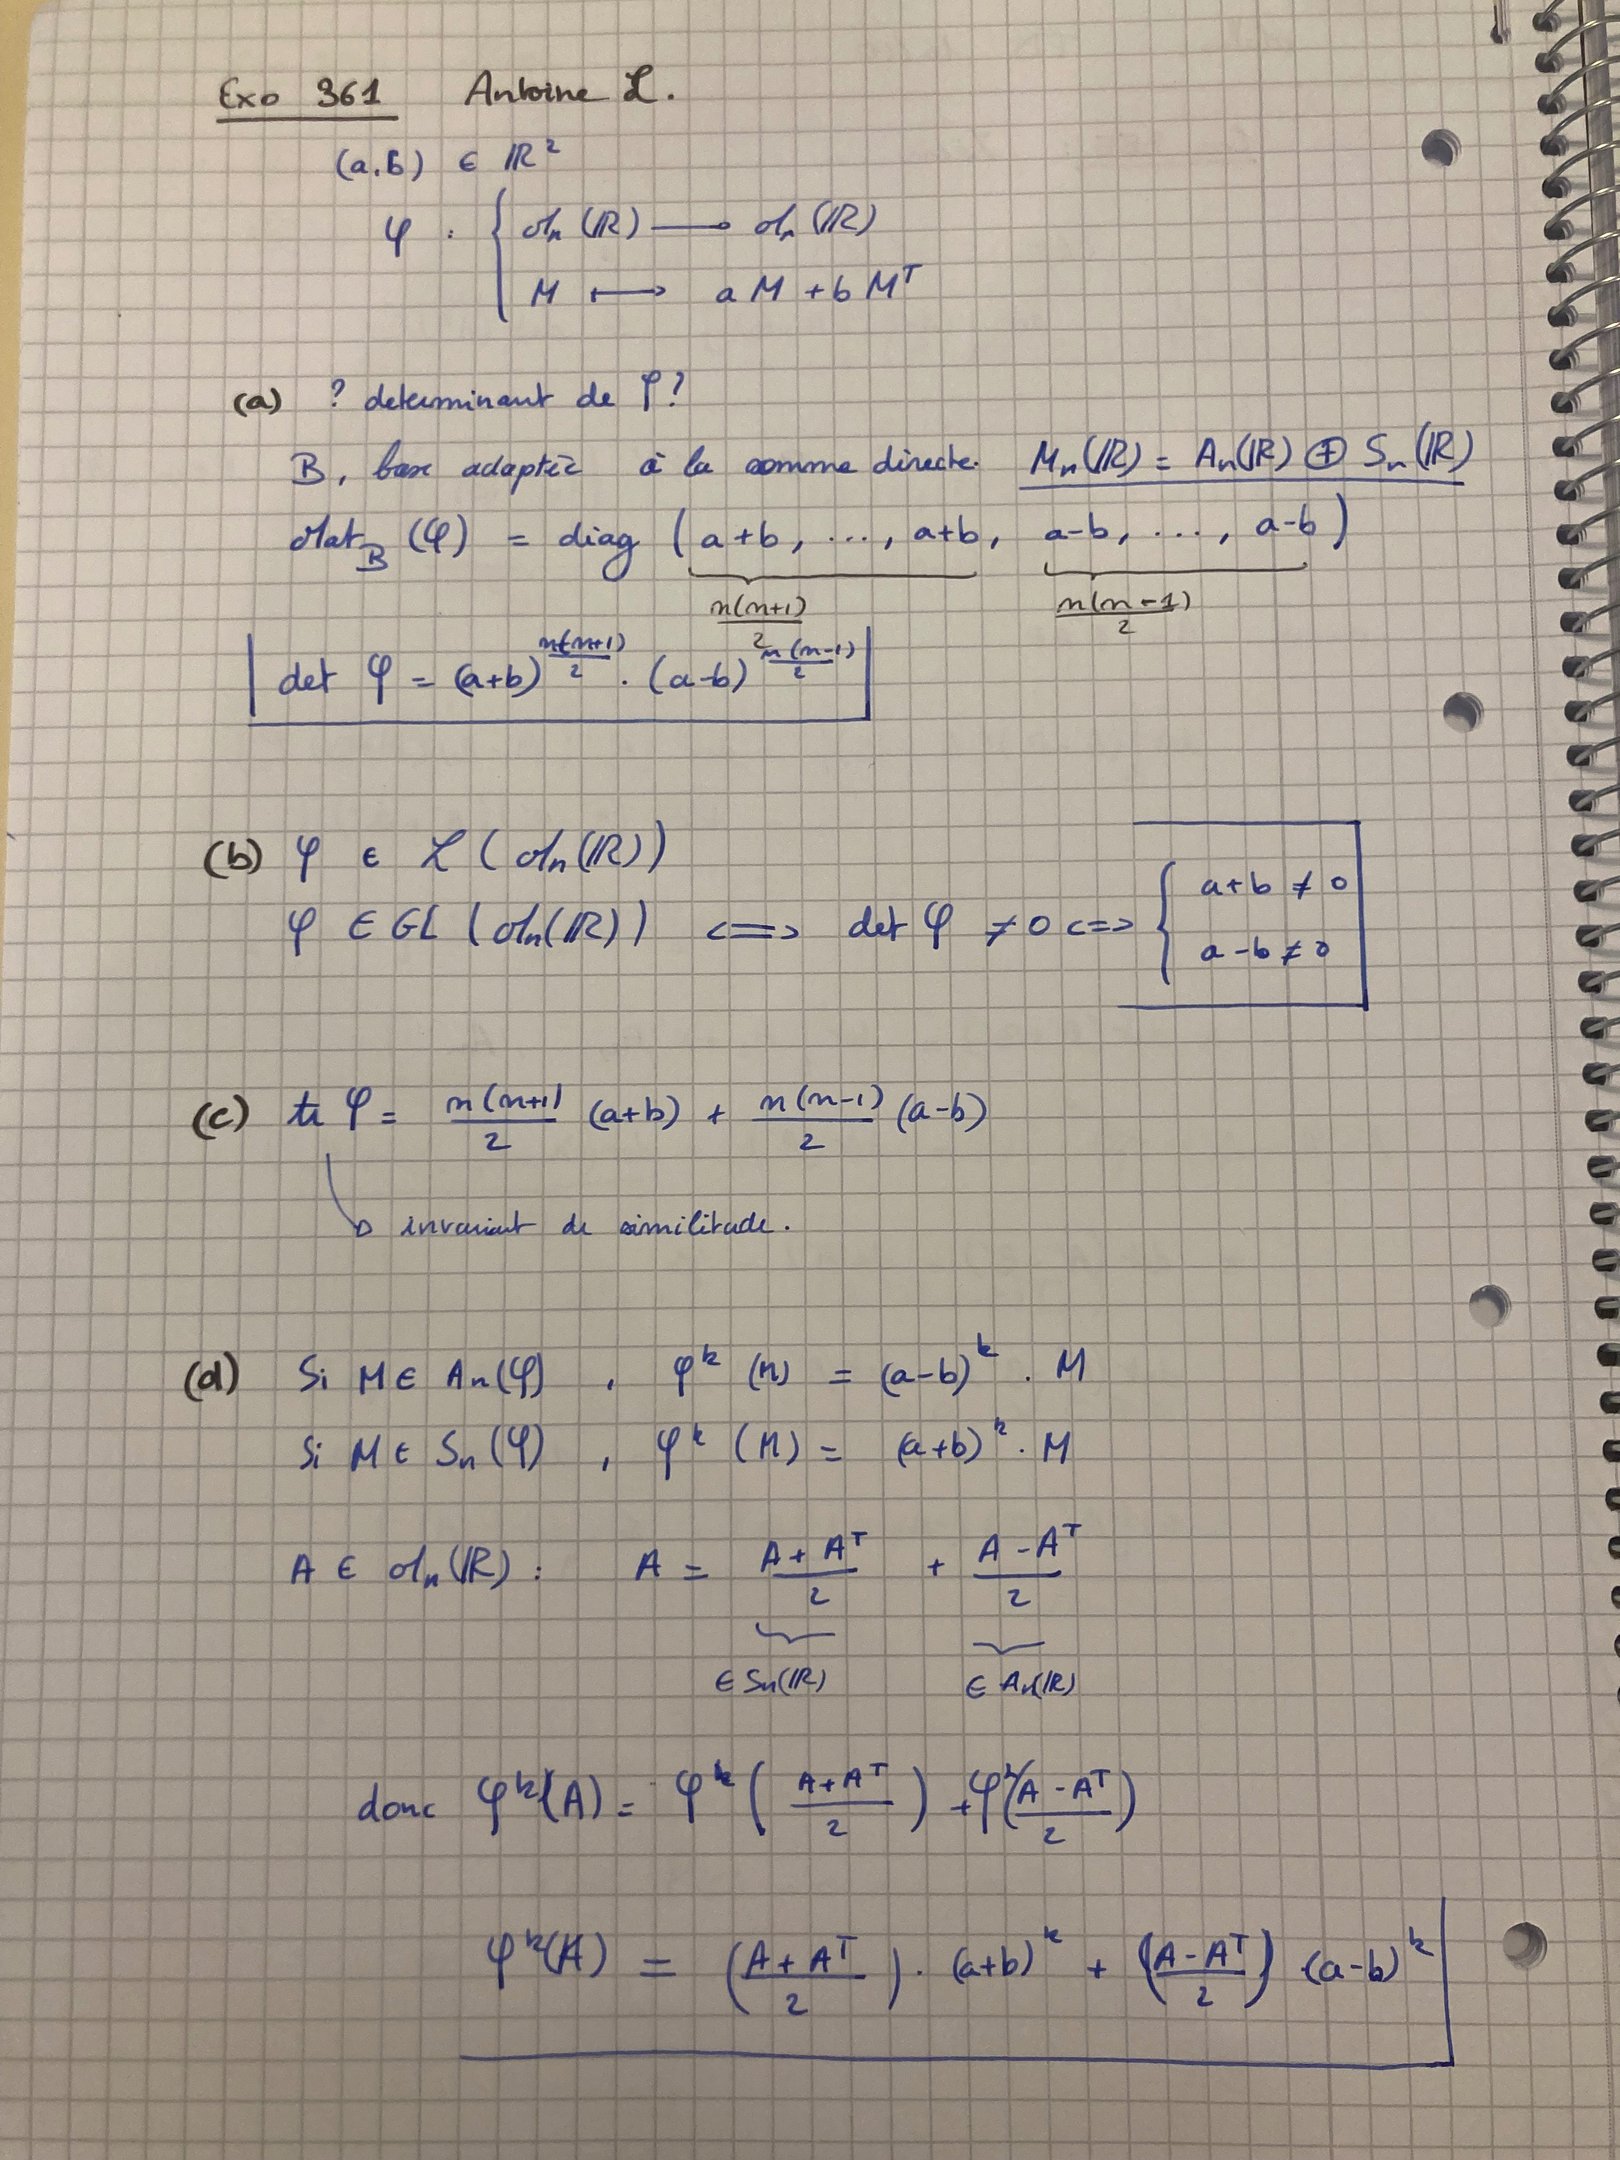 Exo 361 Antoine L.
(a,b) ∈ ℝ²
φ : { ℳn(ℝ) → ℳn(ℝ)
M ⟼ aM + bMᵀ
(a) ? determinant de φ ?
B, base adaptée à la somme directe. Mn(ℝ) = An(ℝ) ⊕ Sn(ℝ)
Mat_B(φ) = diag (a+b, ..., a+b, a-b, ..., a-b)
n(n+1)/2 n(n-1)/2
det φ = (a+b)^(n(n+1)/2) · (a-b)^(n(n-1)/2)
(b) φ ∈ ℒ(ℳn(ℝ))
φ ∈ GL(ℳn(ℝ)) <=> det φ ≠ 0 <=> { a+b ≠ 0
a-b ≠ 0
(c) tr φ = n(n+1)/2 (a+b) + n(n-1)/2 (a-b)
↳ invariant de similitude.
(d) Si M ∈ An(φ), φ^k (M) = (a-b)^k · M
Si M ∈ Sn(φ), φ^k (M) = (a+b)^k · M
A ∈ ℳn(ℝ) : A = (A + Aᵀ)/2 + (A - Aᵀ)/2
∈ Sn(ℝ) ∈ An(ℝ)
donc φ^k(A) = φ^k((A+Aᵀ)/2) + φ^k((A-Aᵀ)/2)
φ^k(A) = ((A+Aᵀ)/2) · (a+b)^k + ((A-Aᵀ)/2) · (a-b)^k